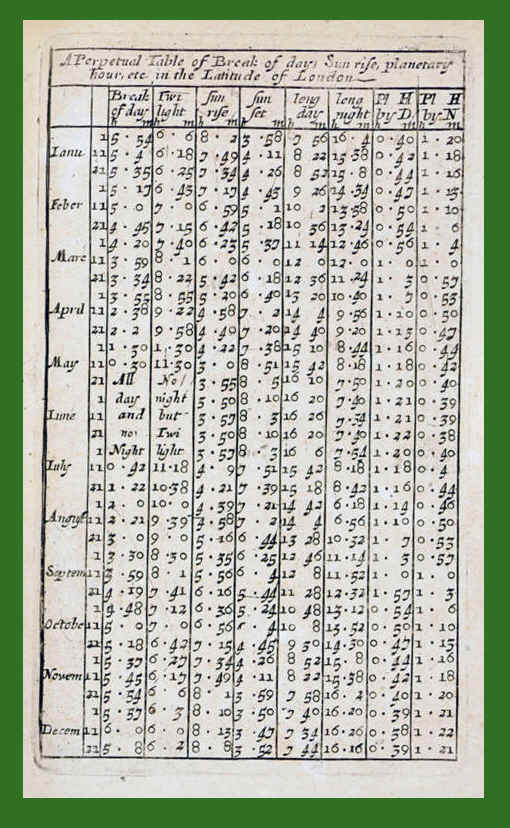 A Perpetual Table of Break of day, Sun rise, planetary
hour, etc in the Latitude of London
Break of day Twi light sun rise sun set long day long night Pl H by D Pl H by N
h m h m h m h m h m h m h m h m
Ianu 1 5 · 54 6 · 6 8 · 2 3 · 58 7 56 16 · 4 0 · 40 1 · 20
11 5 · 4 6 · 18 7 · 49 4 · 11 8 22 15 · 38 0 · 42 1 · 18
21 5 · 35 6 · 25 7 · 34 4 · 26 8 52 15 · 8 0 · 44 1 · 16
Feber 1 5 · 17 6 · 43 7 · 17 4 · 43 9 26 14 · 34 0 · 47 1 · 13
11 5 · 0 7 · 0 6 · 59 5 · 1 10 2 13 · 58 0 · 50 1 · 10
21 4 · 45 7 · 15 6 · 42 5 · 18 10 36 13 · 24 0 · 54 1 · 6
Marc 1 4 · 20 7 · 40 6 · 23 5 · 37 11 14 12 · 46 0 · 56 1 · 4
11 3 · 59 8 · 1 6 · 0 6 · 0 12 0 12 · 0 1 · 0 1 · 0
21 3 · 34 8 · 22 5 · 42 6 · 18 12 36 11 · 24 1 · 3 0 · 57
April 1 3 · 55 8 · 55 5 · 20 6 · 40 13 20 10 · 40 1 · 7 0 · 53
11 2 · 38 9 · 22 4 · 58 7 · 2 14 4 9 · 56 1 · 10 0 · 50
21 2 · 2 9 · 58 4 · 40 7 · 20 14 40 9 · 20 1 · 13 0 · 47
May 1 1 · 30 1 · 30 4 · 22 7 · 38 15 10 8 · 44 1 · 16 0 · 44
11 0 · 30 11 · 30 3 · 0 8 · 51 15 42 8 · 18 1 · 18 0 · 42
21 All No 3 · 55 8 · 5 16 10 7 · 50 1 · 20 0 · 40
Iune 1 day night 3 · 50 8 · 10 16 20 7 · 40 1 · 21 0 · 39
11 and but 3 · 57 8 · 3 16 26 7 · 34 1 · 21 0 · 39
21 no Twi 3 · 50 8 · 10 16 20 7 · 40 1 · 22 0 · 38
Iuly 1 Night light 3 · 57 8 · 3 16 6 7 · 54 1 · 20 0 · 40
11 0 · 42 11 · 18 4 · 9 7 · 51 15 42 8 · 18 1 · 18 0 · 4
21 1 · 22 10 · 38 4 · 21 7 · 39 15 18 8 · 42 1 · 16 0 · 44
August 1 2 · 0 10 · 0 4 · 39 7 · 21 14 42 6 · 18 1 · 14 0 · 46
11 2 · 21 9 · 39 4 · 58 7 · 2 14 4 6 · 56 1 · 10 0 · 50
21 3 · 0 9 · 0 5 · 16 6 · 44 13 28 10 · 32 1 · 7 0 · 53
Septem 1 3 · 30 8 · 30 5 · 35 6 · 25 12 46 11 · 14 1 · 3 0 · 57
11 3 · 59 8 · 1 5 · 56 6 · 4 12 8 11 · 52 1 · 0 1 · 0
21 4 · 19 7 · 41 6 · 16 5 · 44 11 28 12 · 32 1 · 57 1 · 3
Octobe 1 5 · 48 7 · 12 6 · 36 5 · 24 10 48 13 · 12 0 · 54 1 · 6
11 5 · 0 7 · 0 6 · 56 5 · 4 10 8 13 · 52 0 · 50 1 · 10
21 5 · 18 6 · 42 7 · 15 4 · 45 9 30 14 · 30 0 · 47 1 · 13
Novem 1 5 · 37 6 · 27 7 · 34 4 · 26 8 52 15 · 8 0 · 44 1 · 16
11 5 · 45 6 · 17 7 · 49 4 · 11 8 22 15 · 38 0 · 42 1 · 18
21 5 · 54 6 · 6 8 · 1 3 · 59 7 58 16 · 2 0 · 40 1 · 20
Decem 1 5 · 57 6 · 3 8 · 10 3 · 50 7 40 16 · 20 0 · 39 1 · 21
11 6 · 0 6 · 0 8 · 13 3 · 47 7 34 16 · 26 0 · 38 1 · 22
21 5 · 8 6 · 2 8 · 8 3 · 52 7 44 16 · 16 0 · 39 1 · 21